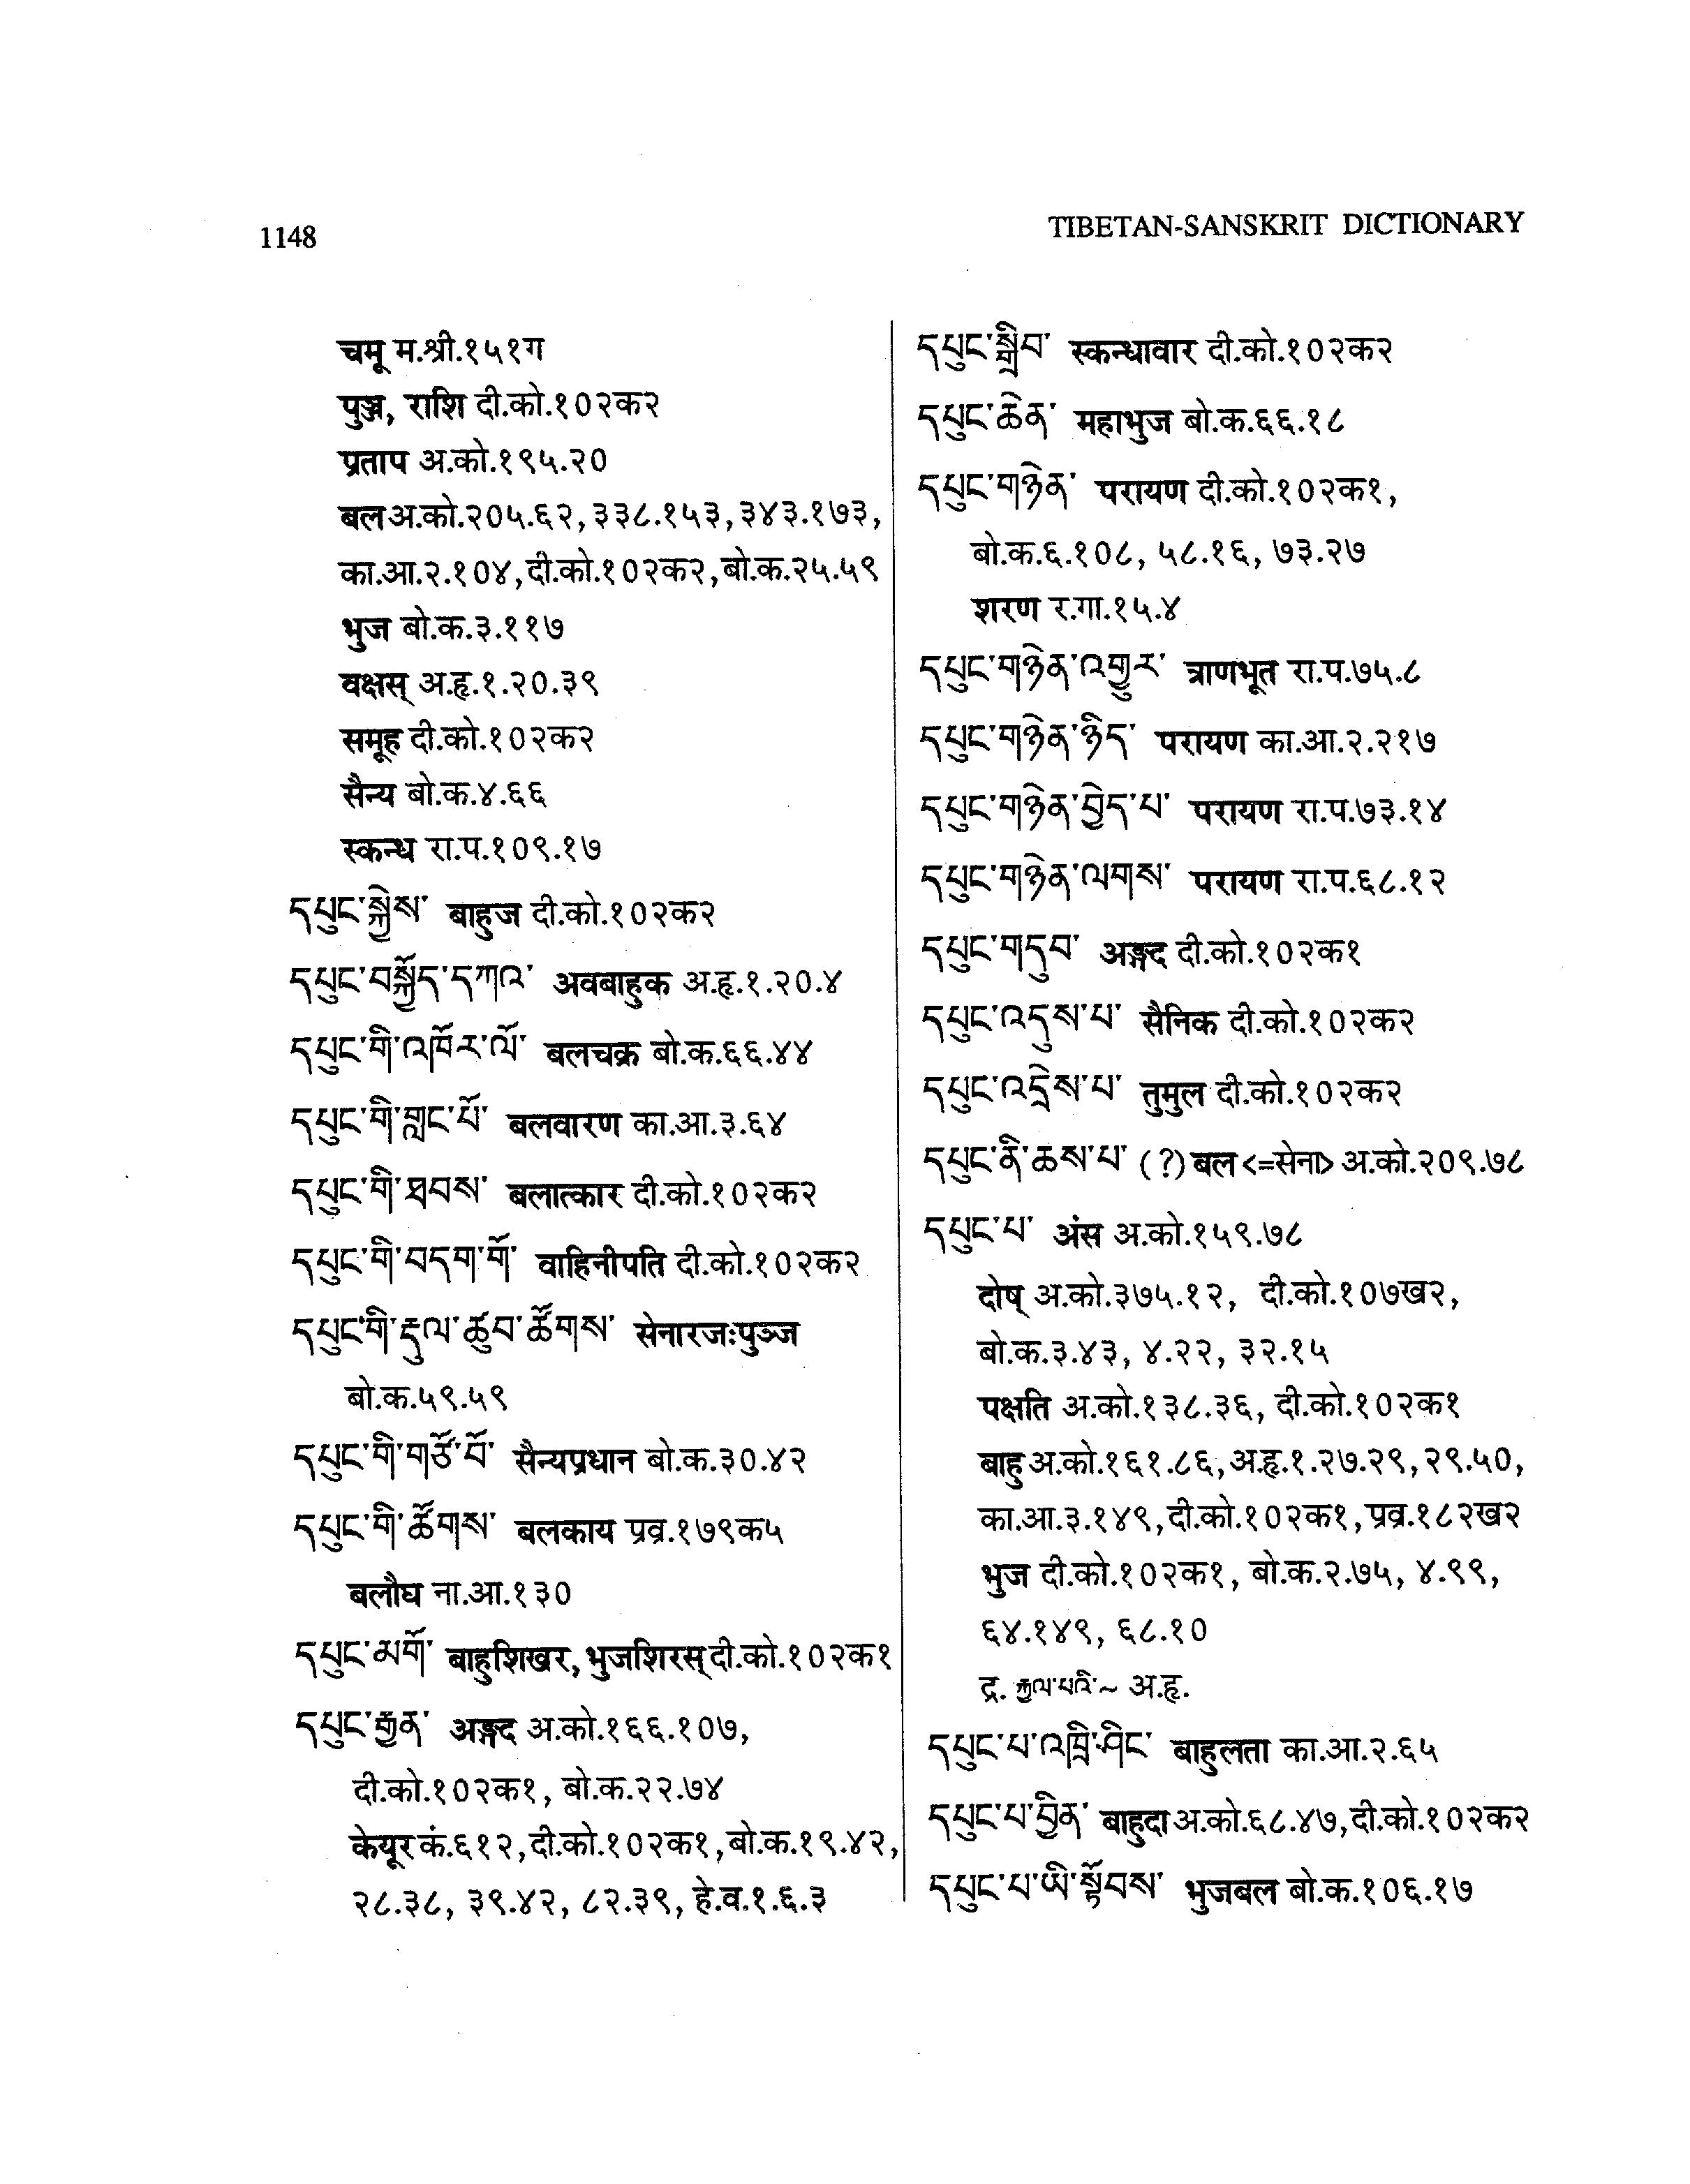 1148
TIBETAN-SANSKRIT DICTIONARY
चमू म.श्री.१५१ग
पुञ्ज, राशि दी.को.१०२क२
प्रताप अ.को.१९५.२०
बल अ.को.२०५.६२, ३३८.१५३, ३४३.१७३,
का.आ.२.१०४, दी.को.१०२क२, बो.क.२५.५९
भुज बो.क.३.११७
वक्षस् अ.हृ.१.२०.३९
समूह दी.को.१०२क२
सैन्य बो.क.४.६६
स्कन्ध रा.प.१०९.१७
དཔུང་སྐྱེས་ बाहुज दी.को.१०२क२
དཔུང་བསྐྱོད་དཀའ་ अवबाहुक अ.हृ.१.२०.४
དཔུང་གི་འཁོར་ལོ་ बलचक्र बो.क.६६.४४
དཔུང་གི་གླང་པོ་ बलवारण का.आ.३.६४
དཔུང་གི་ཐབས་ बलात्कार दी.को.१०२क२
དཔུང་གི་བདག་པོ་ वाहिनीपति दी.को.१०२क२
དཔུང་གི་རྡུལ་ཚུབ་ཚོགས་ सेनारजःपुञ्ज
बो.क.५९.५९
དཔུང་གི་གཙོ་བོ་ सैन्यप्रधान बो.क.३०.४२
དཔུང་གི་ཚོགས་ बलकाय प्रव्र.१७९क५
बलौघ ना.आ.१३०
དཔུང་མགོ་ बाहुशिखर, भुजशिरस् दी.को.१०२क१
དཔུང་རྒྱན་ अङ्गद अ.को.१६६.१०७,
दी.को.१०२क१, बो.क.२२.७४
केयूर कं.६१२, दी.को.१०२क१, बो.क.१९.४२,
२८.३८, ३९.४२, ८२.३९, हे.व.१.६.३
དཔུང་སྒྲིབ་ स्कन्धावार दी.को.१०२क२
དཔུང་ཆེན་ महाभुज बो.क.६६.१८
དཔུང་གཉེན་ परायण दी.को.१०२क१,
बो.क.६.१०८, ५८.१६, ७३.२७
शरण र.गा.१५.४
དཔུང་གཉེན་འགྱུར་ त्राणभूत रा.प.७५.८
དཔུང་གཉེན་ཉིད་ परायण का.आ.२.२१७
དཔུང་གཉེན་བྱེད་པ་ परायण रा.प.७३.१४
དཔུང་གཉེན་ལགས་ परायण रा.प.६८.१२
དཔུང་གདུབ་ अङ्गद दी.को.१०२क१
དཔུང་འདུས་པ་ सैनिक दी.को.१०२क२
དཔུང་འདྲེས་པ་ तुमुल दी.को.१०२क२
དཔུང་ནི་ཆས་པ་ (?) बल <=सेना> अ.को.२०९.७८
དཔུང་པ་ अंस अ.को.१५९.७८
दोष् अ.को.३७५.१२, दी.को.१०७ख२,
बो.क.३.४३, ४.२२, ३२.१५
पक्षति अ.को.१३८.३६, दी.को.१०२क१
बाहु अ.को.१६१.८६, अ.हृ.१.२७.२९, २९.५०,
का.आ.३.१४९, दी.को.१०२क१, प्रव्र.१८२ख२
भुज दी.को.१०२क१, बो.क.२.७५, ४.९९,
६४.१४९, ६८.१०
द्र. རྐྱལ་པའི་~ अ.हृ.
དཔུང་པ་འཁྲི་ཤིང་ बाहुलता का.आ.२.६५
དཔུང་པ་བྱིན་ बाहुदा अ.को.६८.४७, दी.को.१०२क२
དཔུང་པ་ཡི་སྟོབས་ भुजबल बो.क.१०६.१७